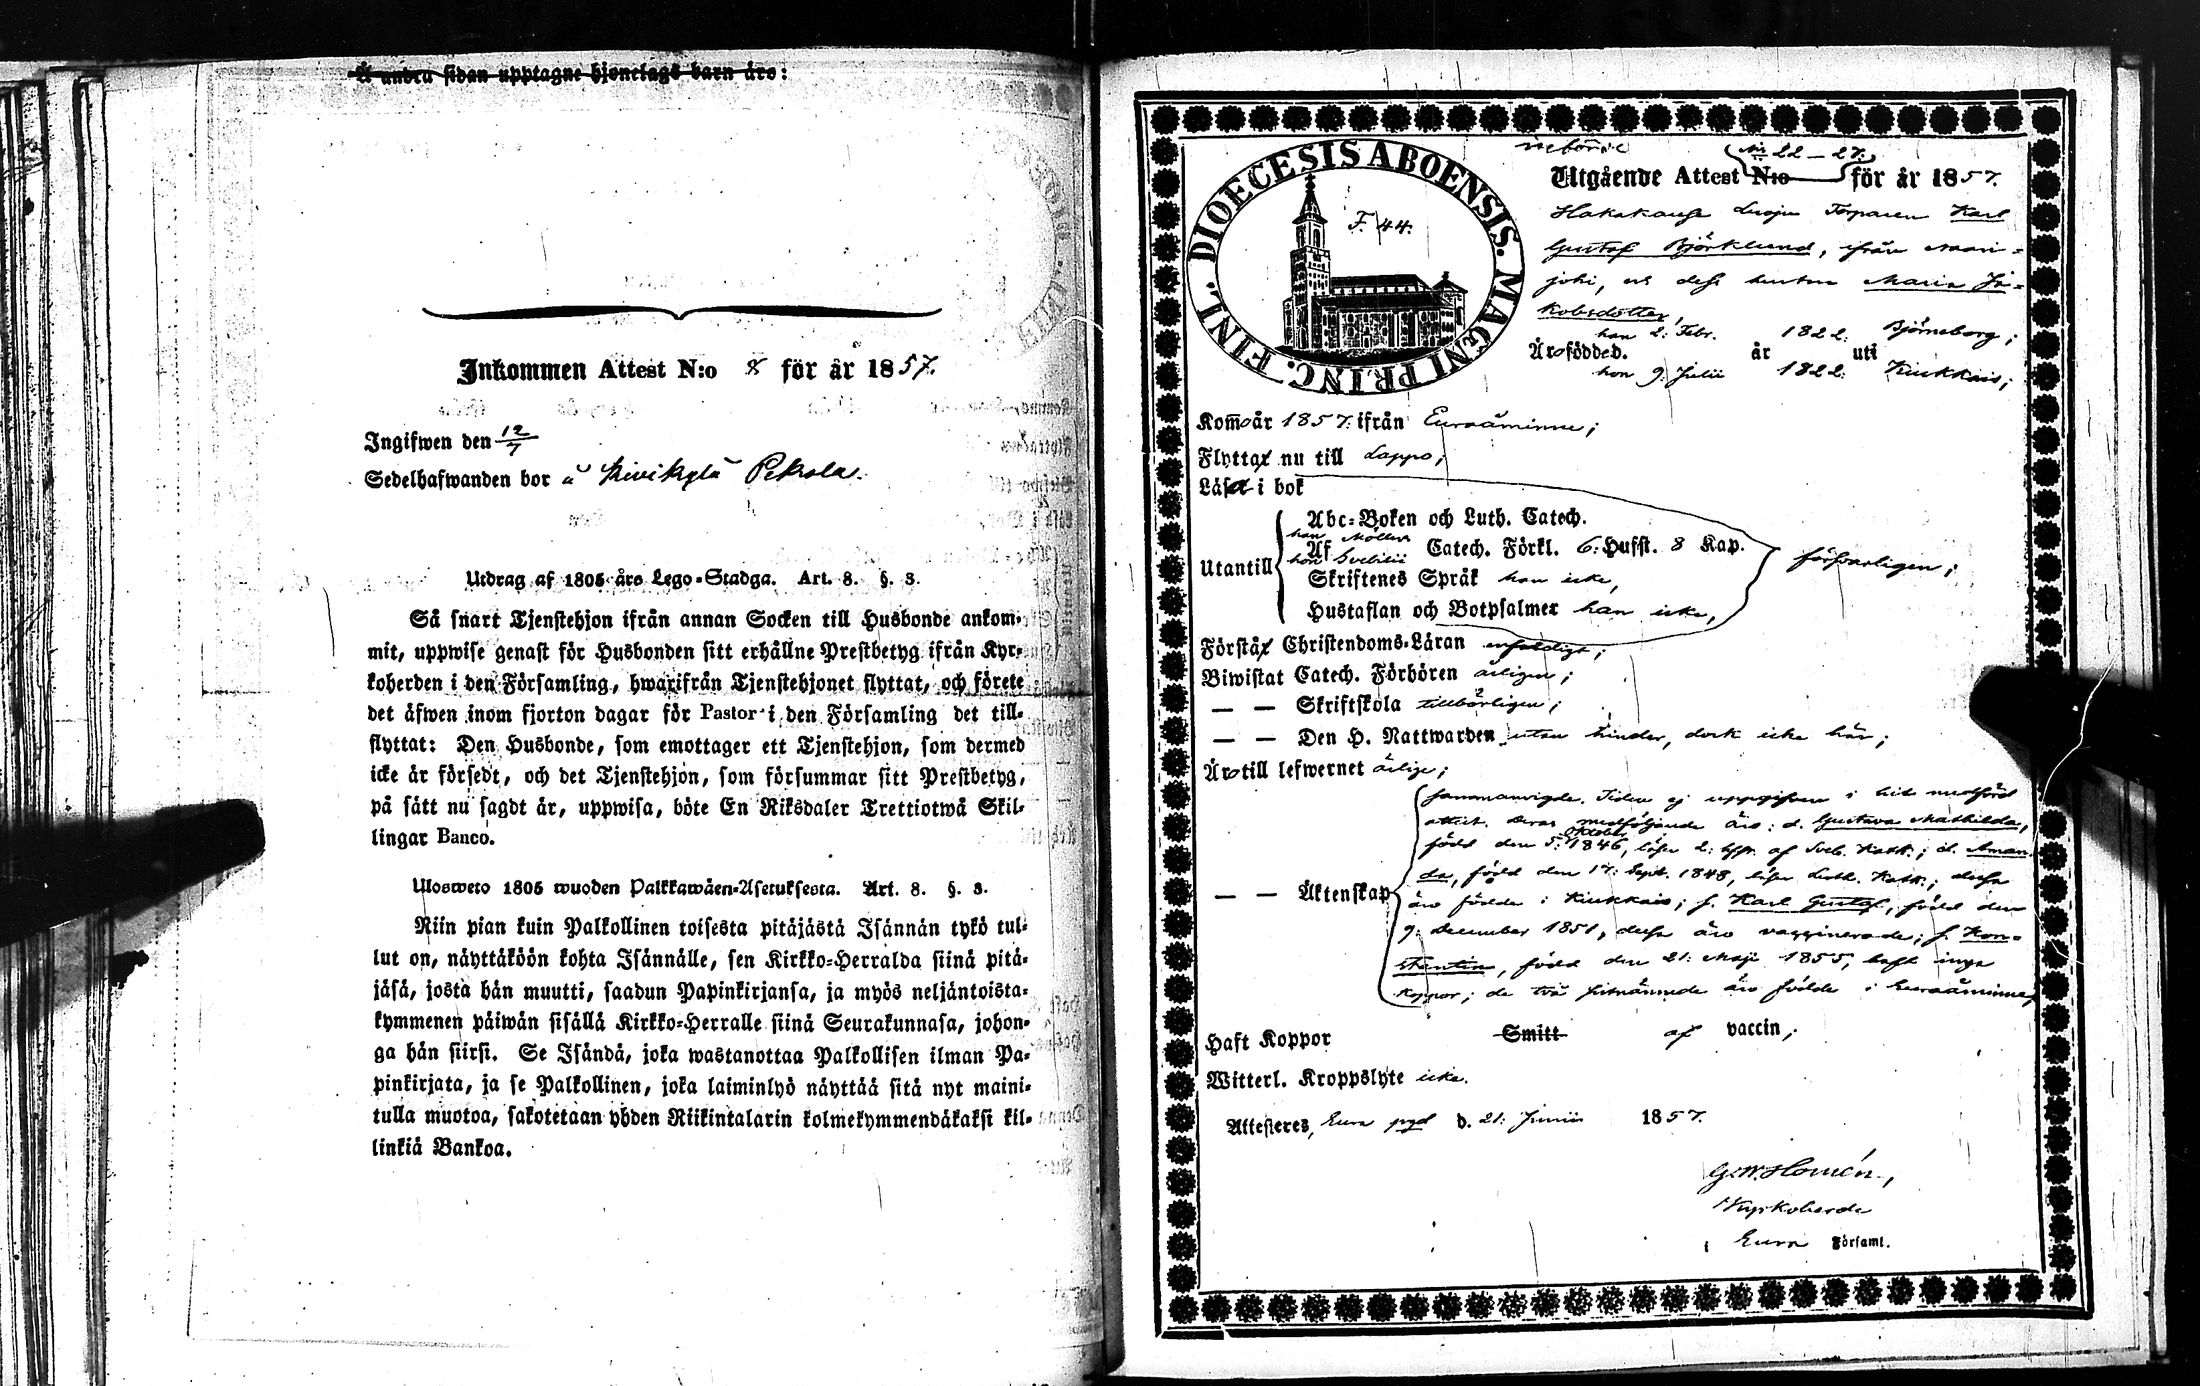 Å andra sidan upptagne hjonelags barn äro:
Inkommen Attest N:o 8 för år 1857.
Ingifwen den 12/7
Sedelhafwanden bor å Kivikylä Pekola.
Utdrag af 1805 års Lego-Stadga. Art. 8. §. 3.
Så snart Tjenstehjon ifrån annan Socken till Husbonde ankom-
mit, uppwise genast för Husbonden sitt erhållne Prestbetyg ifrån Kyr-
koherden i den Församling, hwarifrån Tjenstehjonet flyttat, och förete
det äfwen inom fjorton dagar för Pastor i den Församling det till-
flyttat: Den Husbonde, som emottager ett Tjenstehjon, som dermed
icke är försedt, och det Tjenstehjon, som försummar sitt Prestbetyg,
på sätt nu sagdt är, uppwisa, böte En Riksdaler Trettiotwå Skil-
lingar Banco.
Ulosweto 1805 wuoden Palkkawäen-Asetuksesta. Art. 8. §. 3.
Niin pian kuin Palkollinen toisesta pitäjästä Isännän tykö tul-
lut on, näyttäköön kohta Isännälle, sen Kirkko-Herralda siinä pitä-
jäsä, josta hän muutti, saadun Papinkirjansa, ja myös neljäntoista-
kymmenen päiwän sisällä Kirkko-Herralle siinä Seurakunnasa, johon-
ga hän siirsi. Se Isändä, joka wastanottaa Palkollisen ilman Pa-
pinkirjata, ja se Palkollinen, joka laiminlyö näyttää sitä nyt maini-
tulla muotoa, sakotetaan yhden Riikintalarin kolmekymmendäkaksi kil-
linkiä Bankoa.
DIOECESIS ABOENSIS. MAGNI PRINC. FINL.
F. 44.
N:o 22-27.
Utgående Attest N:o för år 1857.
Torparen Karl
Gustaf Björklund, ifrån Naari-
joki, och dess hustru Maria Ja-
kobsdotter,
han 2: Febr. 1822. Björneborg;
Äro födde d. år uti
hon 9: Julii 1822. Kiukkais;
Kommo år 1857. ifrån Euraåminne;
Flytta nu till Lappo;
Läsa i bok
Abc-Boken och Luth. Catech.
han Möllers
Utantill Af Catech. Förkl. 6: Hufst. 8 Kap. försvarligen;
hon Svebilii
Skriftenes Språk han icke,
Hustaflan och Botpsalmer han icke,
Förstå Christendoms-Läran enfaldigt;
Biwistat Catech. Förhören årligen;
— — Skriftskola tillbörligen;
— — Den H. Nattwarden utan hinder, dock icke här;
Äro till lefwernet ärlige;
sammanvigde. Tiden ej uppgifven i hit medförd
attest. Deras medföljande äro: d. Gustava Mathilda,
född den 5: Oktober 1846, läser 2: af Sveb. Katk.; d. Aman-
da, född den 17: Sept. 1848, läser Luth. Katk.; dessa
— — Äktenskap äro födde i Kiukkais; s. Karl Gustaf, född den
9: December 1851, dessa äro vaccinerade; s. Kon-
stantin, född den 21: Maji 1855, haft inga
Koppor; de två sistnämnde äro födde i Euraåminne;
Haft Koppor Smitt af vaccin;
Witterl. Kroppslyte icke.
Attesteres, Eura pgd d. 21: Junii 1857.
G. W. Homén,
Kyrkoherde
i Eura Församl.